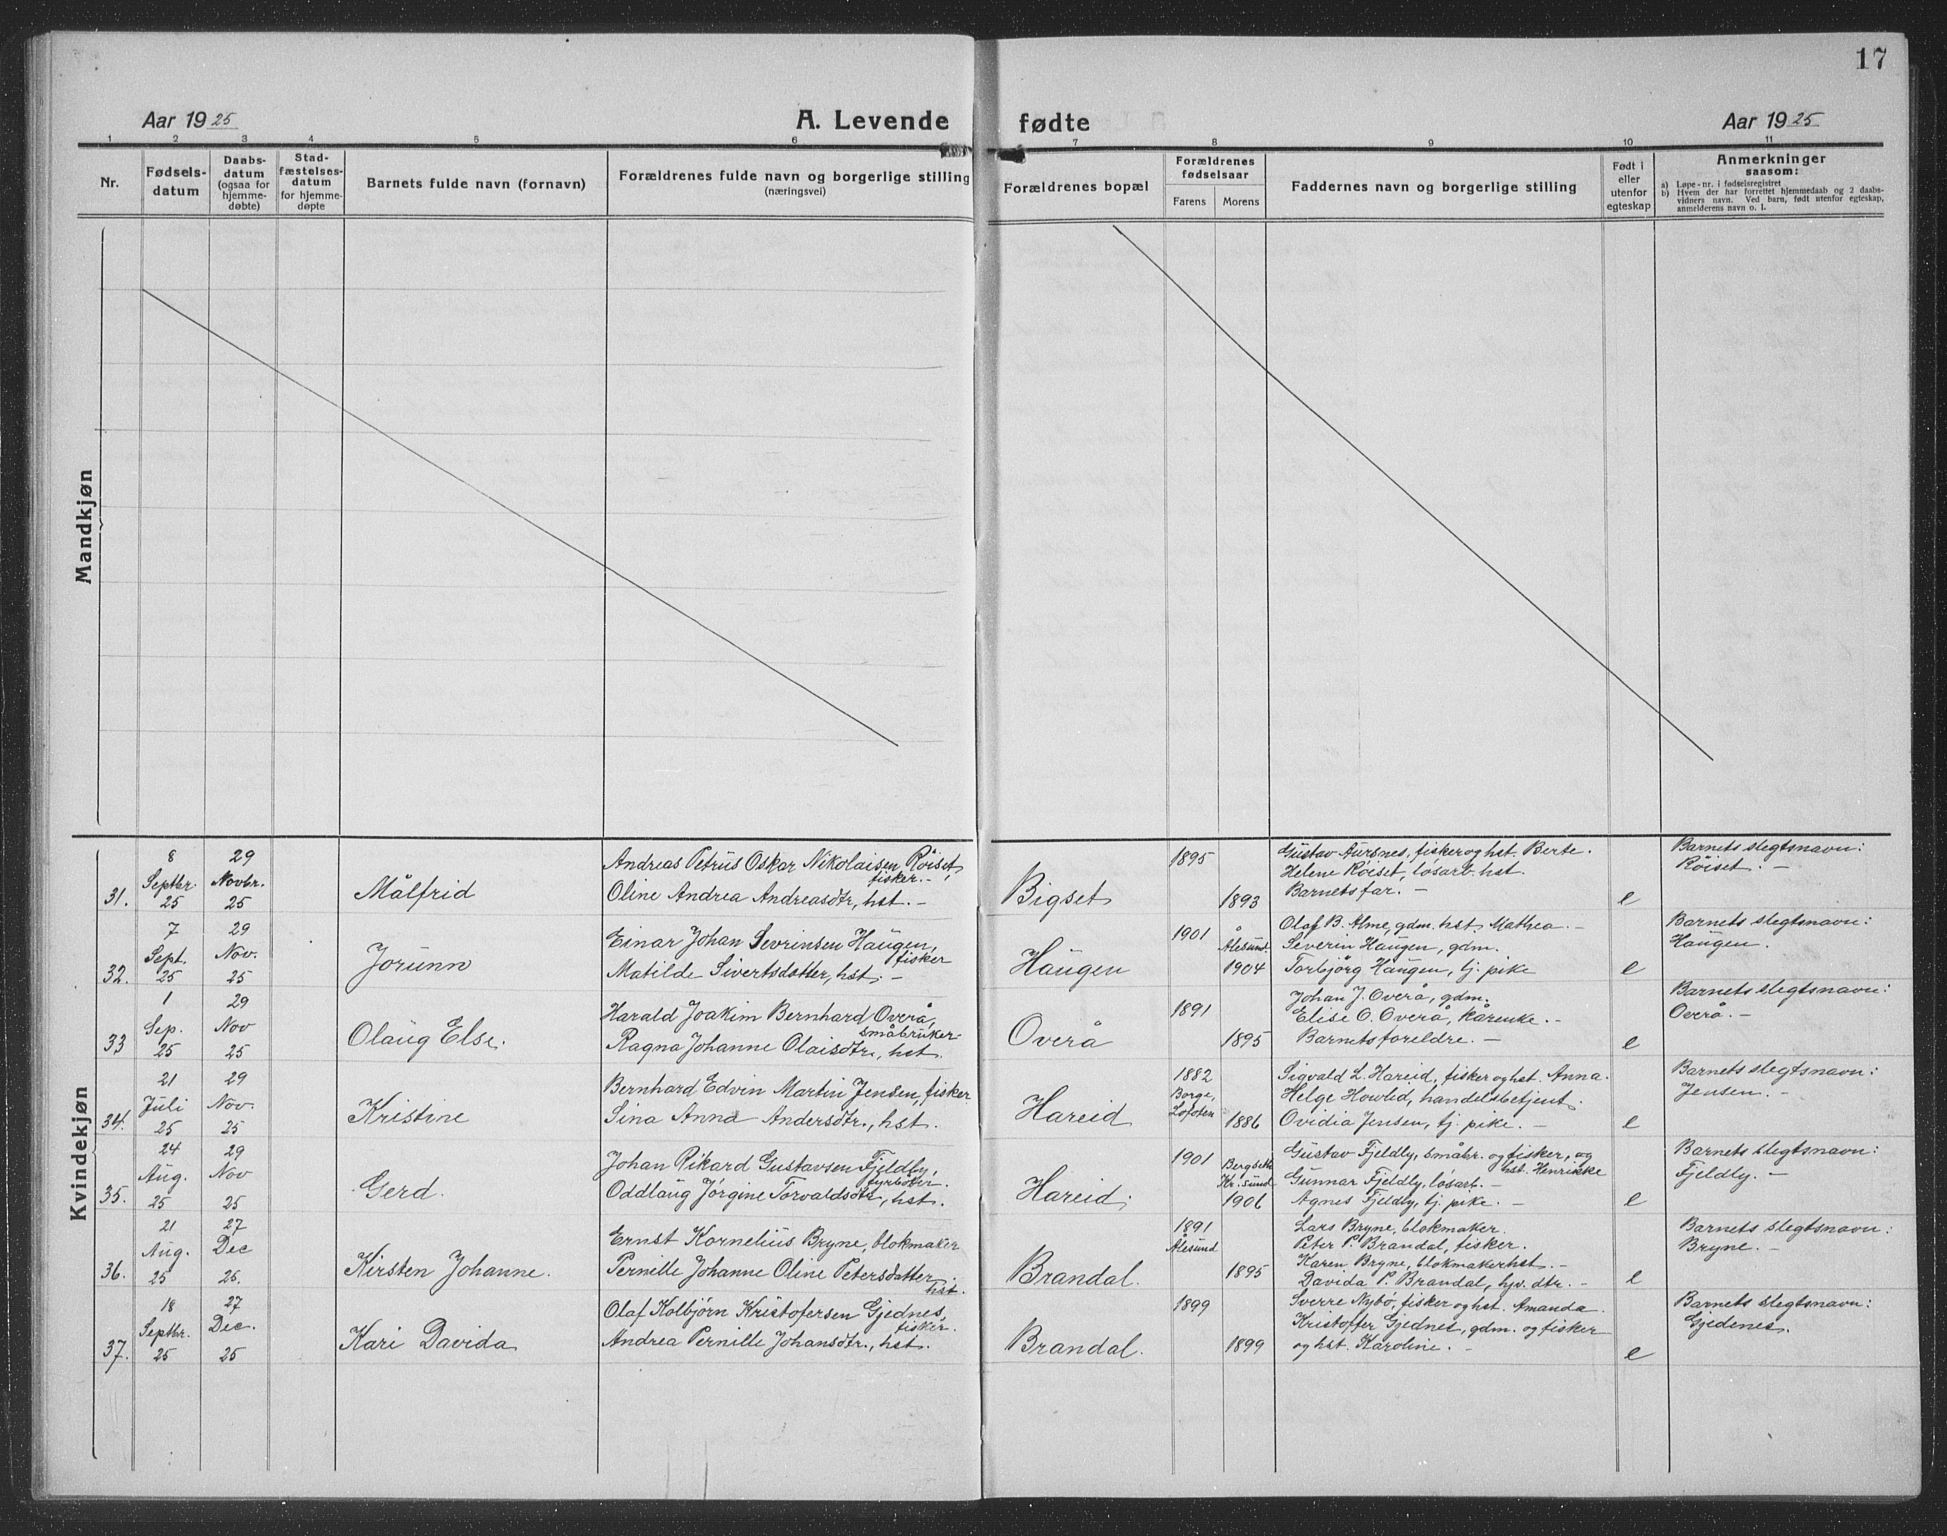 17
Aar 1925
A. Levende
fødte
Aar 1925
1 2 3 4 5 6 7 8 9 10 11
Nr.
Fødsels-
datum
Daabs-
datum
(ogsaa for
hjemme-
døbte)
Stad-
fæstelses-
datum
for hjemme-
døpte
Barnets fulde navn (fornavn)
Forældrenes fulde navn og borgerlige stilling
(næringsvei)
Forældrenes bopæl
Forældrenes
fødselsaar
Farens
Morens
Faddernes navn og borgerlige stilling
Født i
eller
utenfor
egteskap
Anmerkninger
saasom:
a) Løpe-nr. i fødselsregistret
b) Hvem der har forrettet hjemmedaab og 2 daabs-
vidners navn. Ved barn, født utenfor egteskap,
anmelderens navn o. l.
Mandkjøn
Kvindekjøn
31.
8
Septbr.
25
29
Novbr.
25
Målfrid
Andreas Petrus Oskar Nikolaisen Röiset,
fisker. -
Oline Andrea Andreasdtr, hst. -
Bigset
1895
1893
Gustav Aursnes, fisker og hst. Berte.
Helene Röiset, løsarb. hst.
Barnets far. -
e
Barnets slegtsnavn:
Röiset. -
32.
7
Sept.
25
29
Nov.
25
Jorunn
Einar Johan Sevrinsen Haugen,
fisker
Matilde Sivertsdatter, hst. -
Haugen
1901
Ålesund
1904
Olaf B. Alme, gdm. hst. Mathea. -
Severin Haugen, gdm.
Torbjörg Haugen, tj. pike
e
Barnets slegtsnavn:
Haugen.
33
1
Sep.
25
29
Nov
25
Olaug Else.
Harald Joakim Bernhard Overå,
småbruker
Ragna Johanne Olaisdtr, hst.
Overå
1891
1895
Johan J. Overå, gdm.
Elise O. Overå, kårenke. -
Barnets foreldre. -
e
Barnets slegtsnavn:
Overå. -
34.
21
Juli
25
29
Nov.
25
Kristine
Bernhard Edvin Martin Jensen, fisker
Sina Anna Andersdtr., hst.
Hareid
1882
Borge,
Lofoten
1886
Sigvald L. Hareid, fisker og hst. Anna.
Helge Howlid, handelsbetjent.
Ovidia Jensen, tj. pike. -
e
Barnets slegtsnavn:
Jensen. -
35.
24
Aug.
25
29
Nov
25
Gerd.
Johan Rikard Gustavsen Fjeldby,
fyrböter.
Oddlaug Jørgine Torvaldsdtr, hst.
Hareid.
1901
Kr. sund
1906
Gustav Fjeldby, småbr. og fisker, og
hst. Henrikke
Gunnar Fjeldby, løsarb. -
Agnes Fjeldby, tj. pike. -
e
Barnets slegtsnavn:
Fjeldby. -
36.
21
Aug.
25
27
Dec
25.
Kirsten Johanne.
Ernst Kornelius Bryne, blokmaker
Pernille Johanne Oline Petersdatter.
hst.
Brandal.
1891
Ålesund
1895
Lars Bryne, blokmaker.
Peter P. Brandal, fisker.
Karen Bryne, blokmakerhst. -
Davida P. Brandal, hjv. dtr. -
e
Barnets slegtsnavn:
Bryne. -
37.
18
Septbr.
25
27
Dec.
25
Kari Davida
Olaf Kolbjörn Kristofersen Gjednes,
fisker.
Andrea Pernille Johansdtr., hst.
Brandal.
1899
1899
Sverre Nybö, fisker og hst. Amanda.
Kristoffer Gjednes, gdm. og fisker
og hst. Karoline. -
e
Barnets slegtsnavn:
Gjedenes.